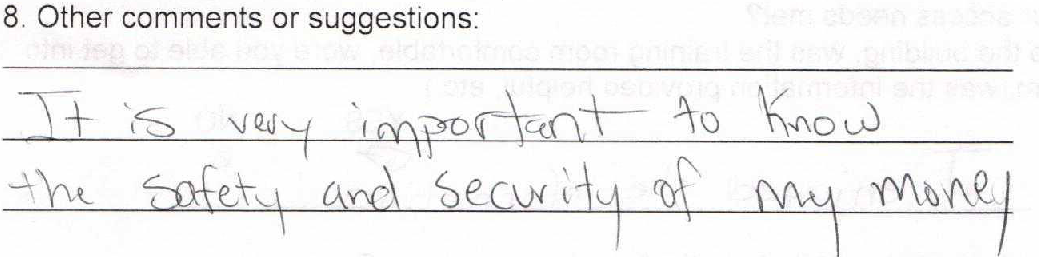 8. Other comments or suggestions:
It is very important to know
the safety and security of my money